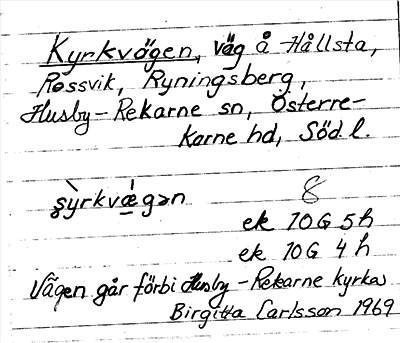 Kyrkvägen, väg å Hållsta,
Rossvik, Ryningsberg,
Husby-Rekarne sn, Österre-
karne hd, Söd l.
8
ek 10G 5h
ek 10G 4h
Vägen går förbi Husby-Rekarne kyrka
Birgitta Carlsson 1969